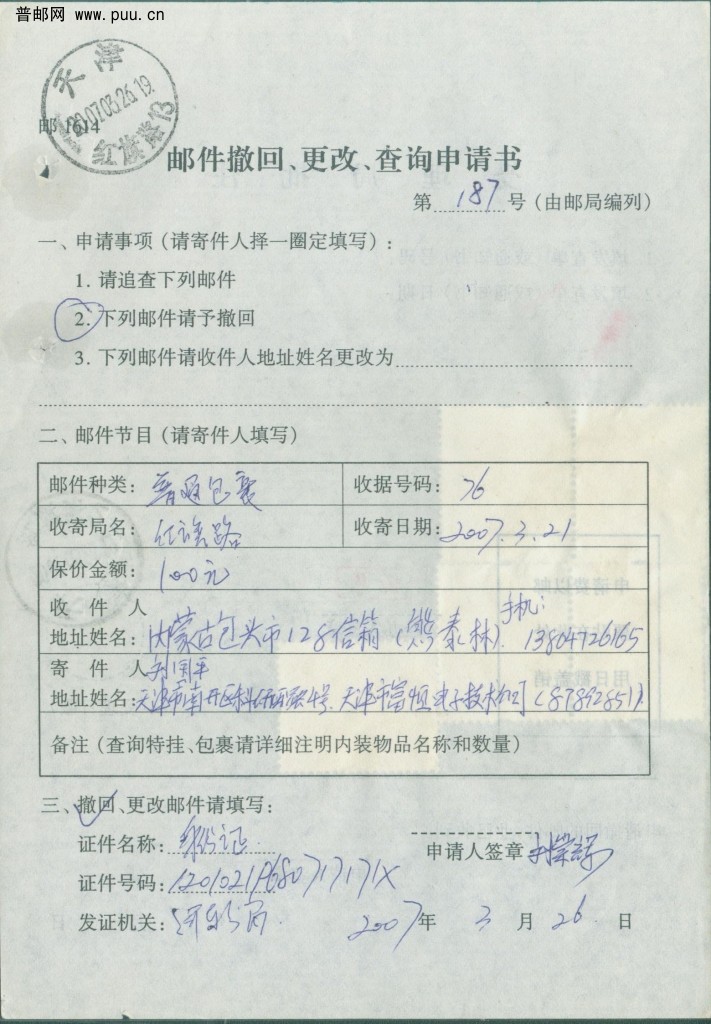 普邮网 www.puu.cn
天津
2007.03.26.19
红旗路13
邮1614
邮件撤回、更改、查询申请书
第 187 号(由邮局编列)
一、申请事项(请寄件人择一圈定填写):
1. 请追查下列邮件
2. 下列邮件请予撤回
3. 下列邮件请收件人地址姓名更改为
二、邮件节目(请寄件人填写)
邮件种类: 普通包裹 收据号码: 76
收寄局名: 收寄日期: 2007.3.21
保价金额: 100元
收件人 手机:
地址姓名: 内蒙古包头市128信箱(熊泰林). 13804726165
寄件人 刘国平
地址姓名: 天津市南开区 4号. 天津市富恒电子技术公司(87892851).
备注(查询特挂、包裹请详细注明内装物品名称和数量)
三、撤回、更改邮件请填写:
证件名称: 身份证
申请人签章
证件号码: 12010219680717171X
发证机关: 河东分局
2007年 3 月 26 日